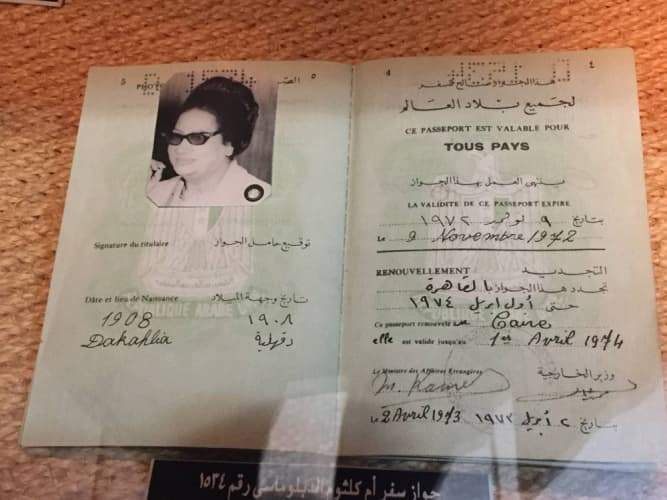 5
٥
PHO
الص
Signature du titulaire
توقيع حامل الجواز
Dâte et lieu de Naissance
تاريخ وجهة الميلاد
1908
١٩٠٨
Dakahlia
دقهلية
4
٤
هذا الجواز صالح للسفر
لجميع بلاد العالم
CE PASSEPORT EST VALABLE POUR
TOUS PAYS
ينتهى العمل بهذا الجواز
LA VALIDITE DE CE PASSEPORT EXPIRE
بتاريخ ٩ نوفمبر ١٩٧٢
Le 9 Novembre 1972
RENOUVELLEMENT
التجديد
تجدد هذا الجواز بالقاهرة
حتى أول ابريل ١٩٧٤
Ce passeport renouvelé au Caire
elle est valide jusqu'au 1er Avril 1974
Le Ministre des Affaires Etrangères
وزير الخارجية
Le 2 Avril 1973
بتاريخ ٢ أبريل ١٩٧٣
جواز سفر أم كلثوم الدبلوماسي رقم ١٥٣٤